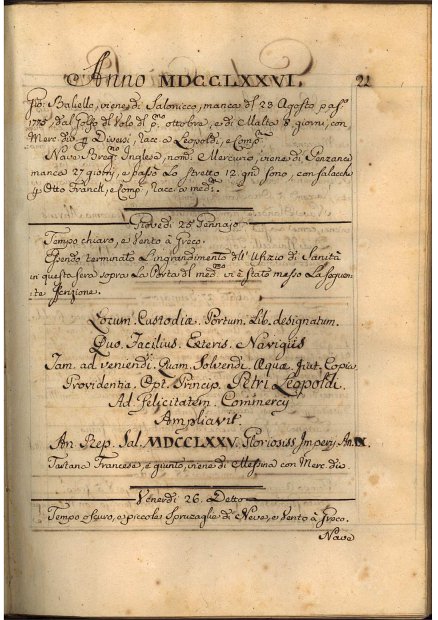 Anno MDCCLXXVI. 22
Gio: Baliello, viene di Salonicco, manca dal 23 Agosto pas:º
1775, dal Golfo di Volo di 8bre ottobre, e di Malta 8 giorni, con
Merc: die p Diversi, racc: a Leopoldi, e Comp:
Nave Breg: Inglese, nom: Mercurio, viene di Penzance
manca 27 giorni, e passò Lo stretto 12. gni sono, con salacche
p Otto Franck, e Comp: racc: a med:
Giovedi 25 Gennajo
Tempo chiaro, e Vento à Greco.
Essendo terminato L'ingrandimento dell' Ufizio di Sanità
in questa sera sopra La Porta del med:mo si è stato messo La seguen-
te Iscrizione.
Locum. Custodiæ. Portum. Lib. designatum.
Quo. Facilius. Exteris. Navigiis
Tam. ad veniendi. Quam. Solvendi. Aquæ. Copia
Providentia. Opt. Princip. Petri Leopoldi.
Ad Felicitatem. Commercy
Ampliavit
An. Rep. Sal. MDCCLXXV. Gloriosiss Impery. An. IX.
Tartana Francese, è giunto, viene di Messina con Merc: die
Venerdi 26. Detto
Tempo oscuro, e piccole spruzaglie di Neve, e Vento à Greco.
Nave